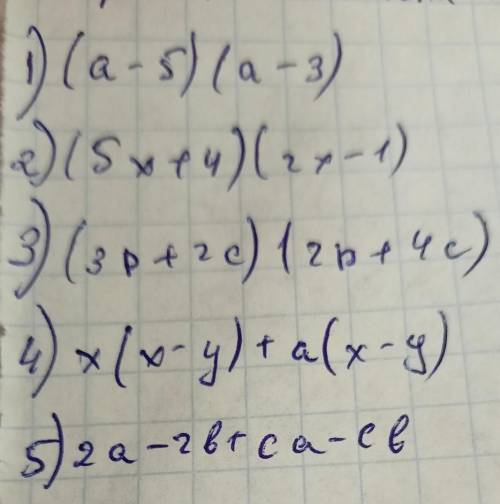 1) (a - 5) (a - 3)
2) (5x + 4) (2x - 1)
3) (3p + 2c) (2p + 4c)
4) x(x - y) + a(x - y)
5) 2a - 2b + ca - cb